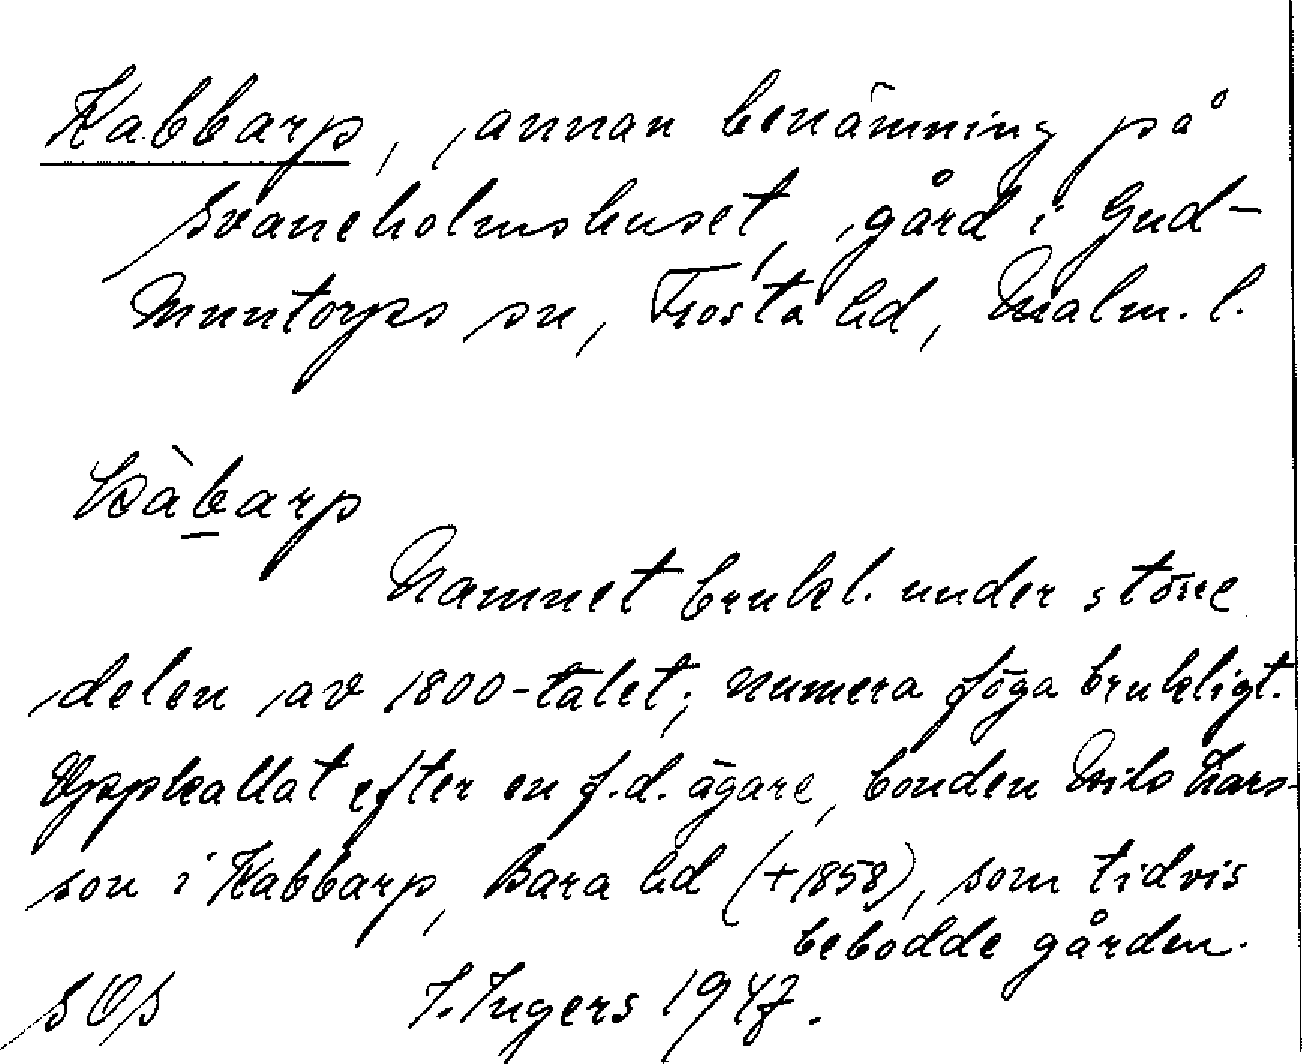 Kabbarp, annan benämning på
Svaneholmshuset, gård i Gud-
muntorps sn, Frosta hd, Malm. l.
kàbarp
Namnet brukl. under större
delen av 1800-talet; numera föga brukligt.
Uppkallat efter en f.d. ägare, bonden Nils Lars-
son i Kabbarp, Bara hd (+1858), som tidvis
bebodde gården.
SOS I. Ingers 1947.